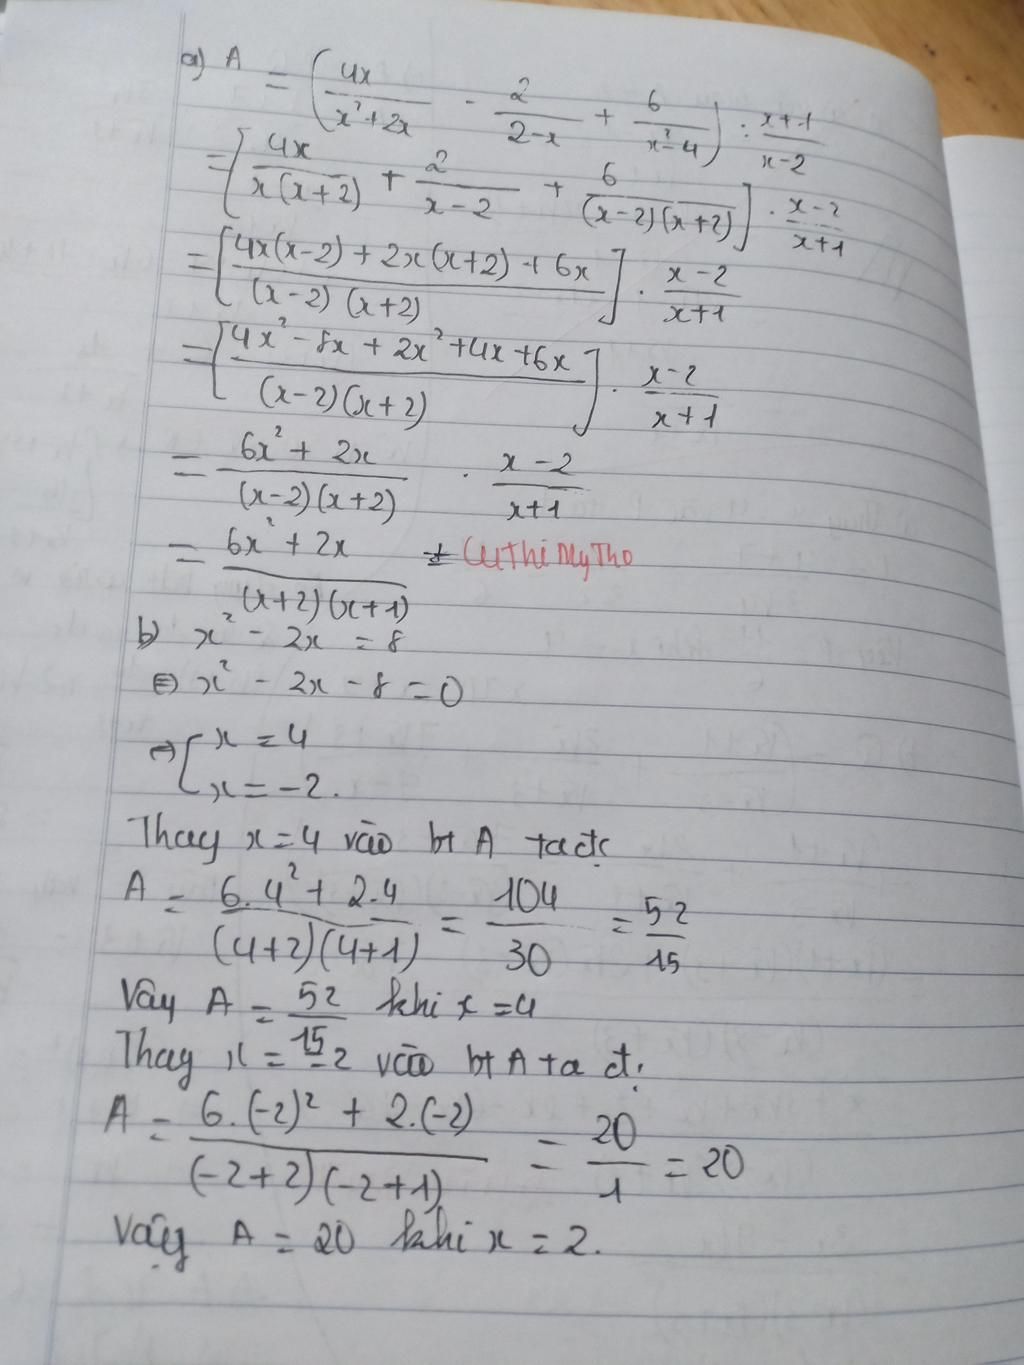 a) A = (4x/(x²+2x) - 2/(2-x) + 6/(x²-4)) : (x+1)/(x-2)
= [4x/(x(x+2)) + 2/(x-2) + 6/((x-2)(x+2))] . (x-2)/(x+1)
= [(4x(x-2) + 2x(x+2) + 6x)/((x-2)(x+2))] . (x-2)/(x+1)
= [(4x² - 8x + 2x² + 4x + 6x)/((x-2)(x+2))] . (x-2)/(x+1)
= (6x² + 2x)/((x-2)(x+2)) . (x-2)/(x+1)
= (6x² + 2x)/((x+2)(x+1)) CuThiMyTho
b) x² - 2x = 8
⇔ x² - 2x - 8 = 0
⇔ [x = 4
x = -2.
Thay x=4 vào bt A ta đc
A = (6.4² + 2.4)/((4+2)(4+1)) = 104/30 = 52/15
Vây A = 52/15 khi x = 4
Thay x = -2 vào bt A ta đ:
A = (6.(-2)² + 2.(-2))/((-2+2)(-2+1)) = 20/1 = 20
Vậy A = 20 khi x = 2.